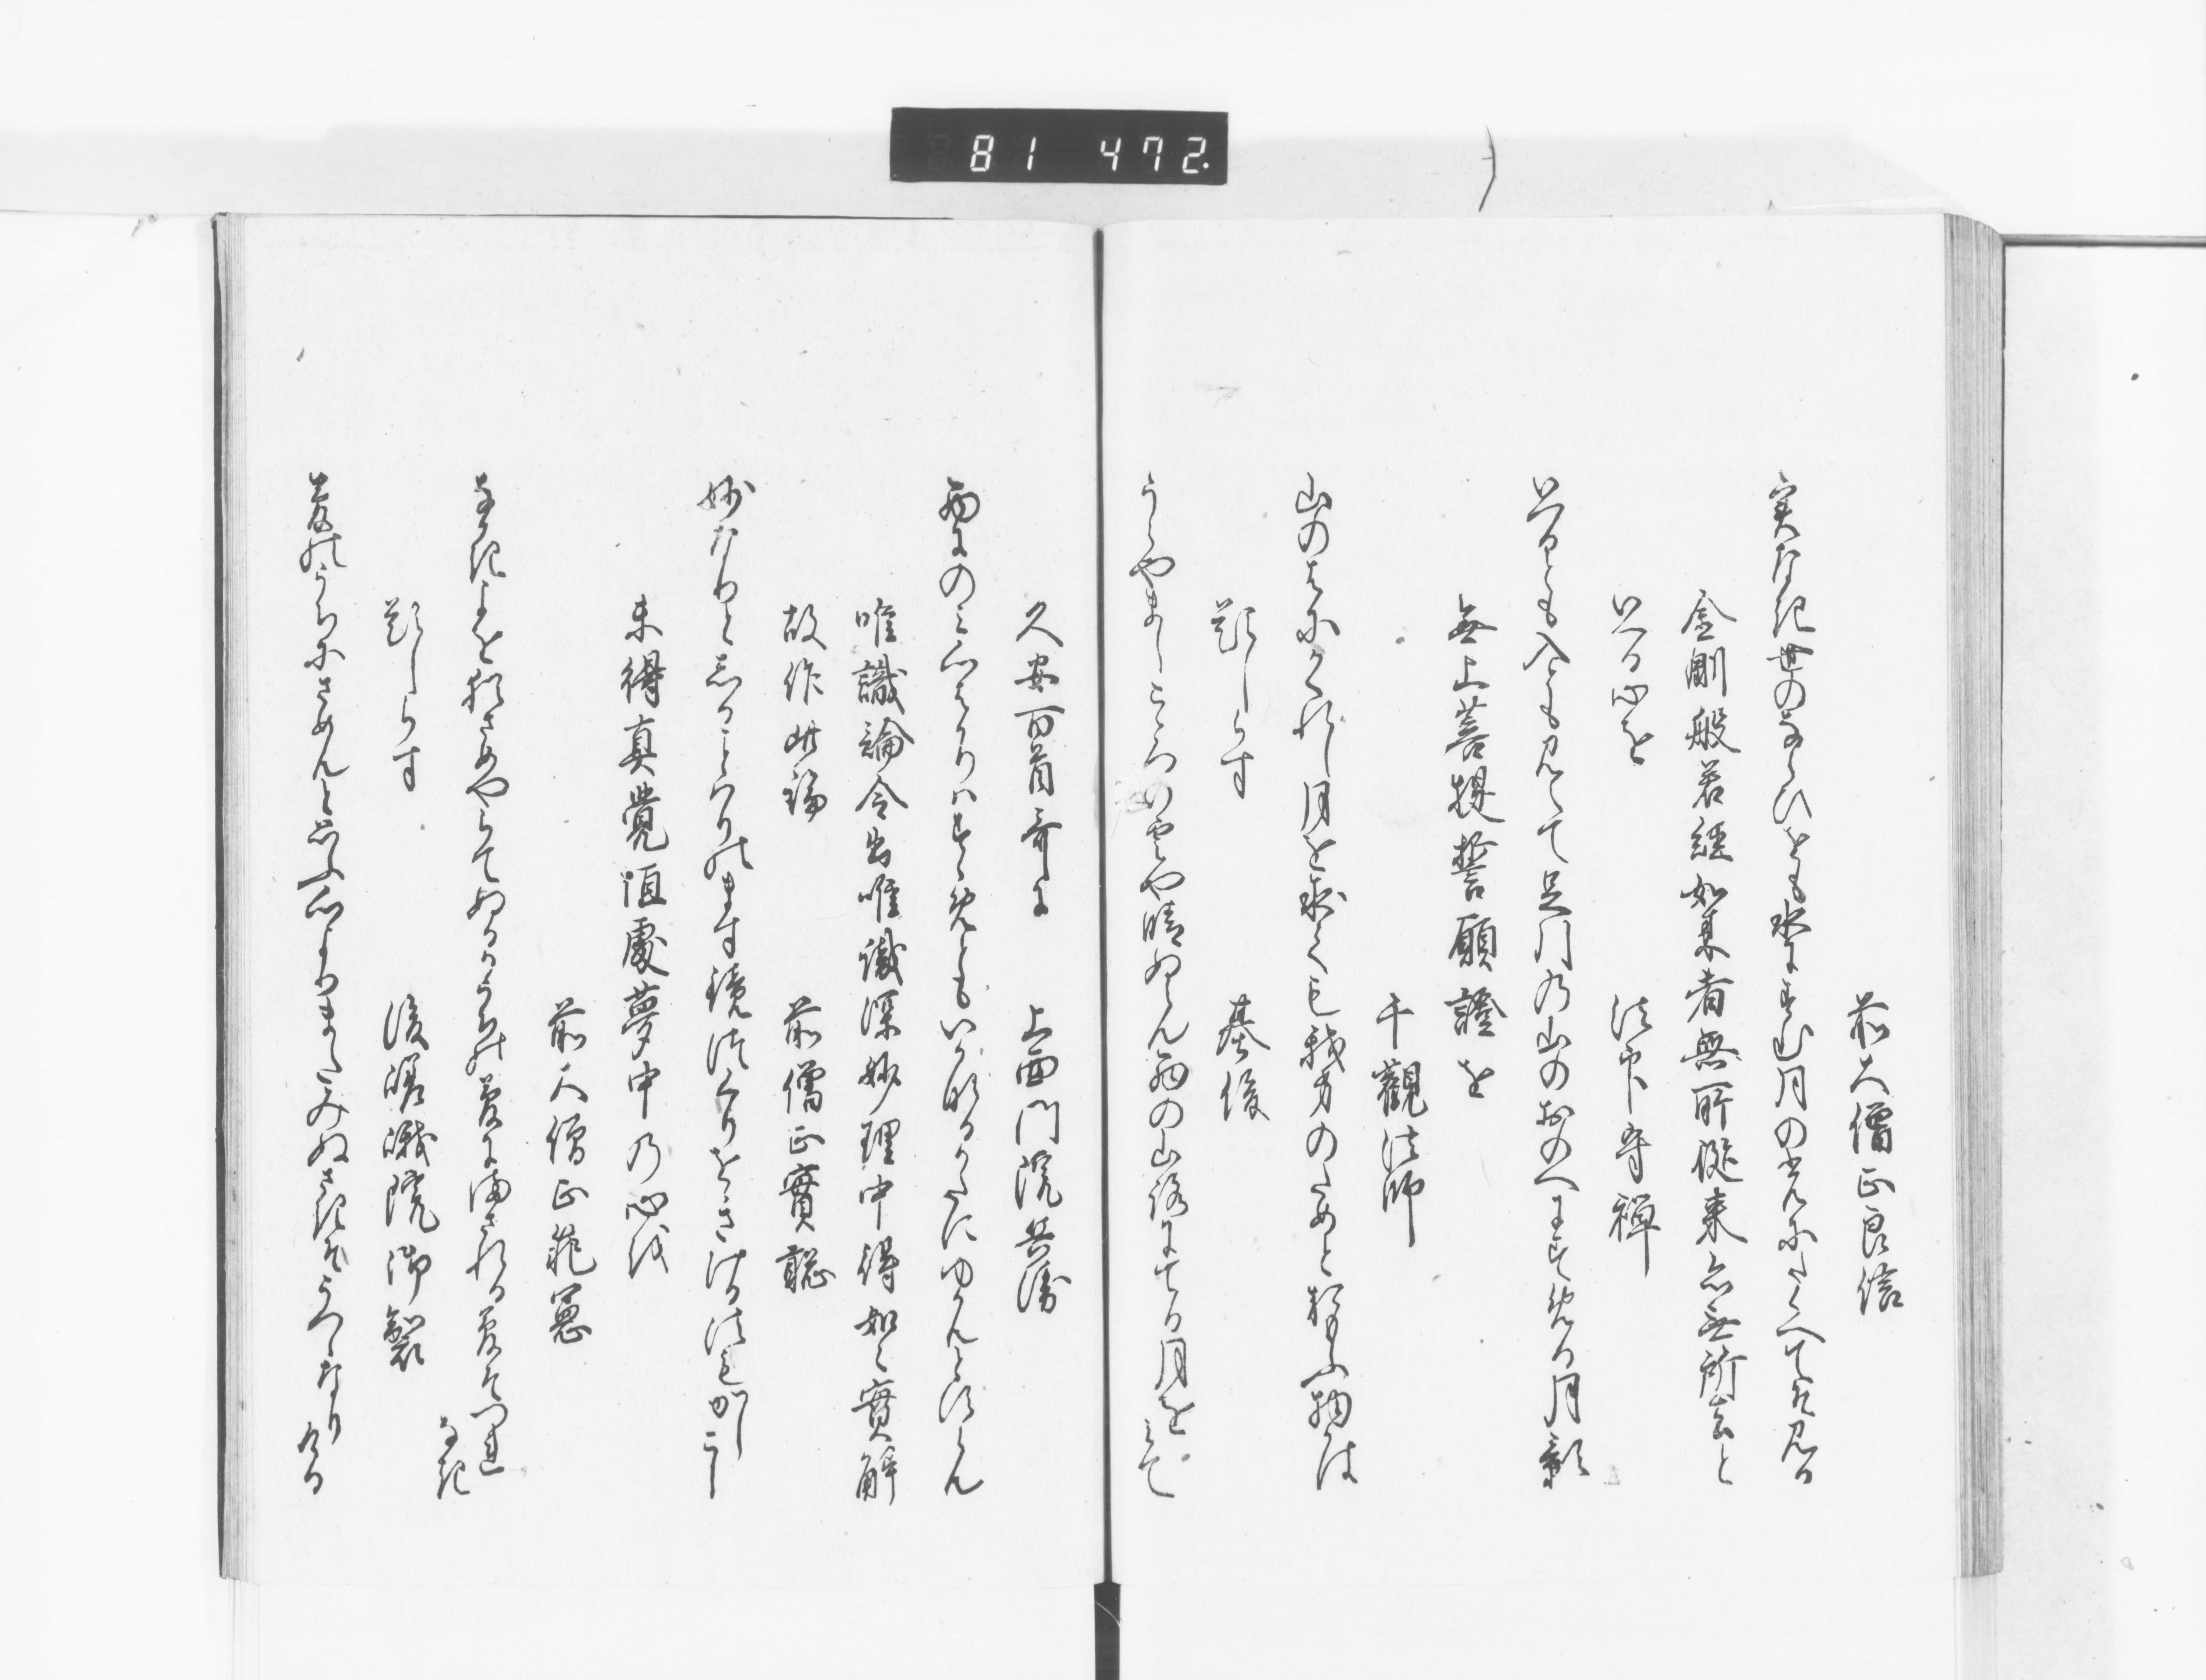 81 472.
前大僧正良信
実なき世のならひをも水にすむ月の光にたくへてそ見る
金剛般若経如来者無所従来亦無所去と
いへる心を
法印守禅
いつとも入とも見えて足門乃山のおのへにすめる月影
無上菩提誓願證を
千觀法師
山のはにかくれし月を求むるも我身のためと思ふ物かは
題しらす
基俊
うらやましこゝろの空や晴ぬらん西の山路にすむ月をみて
久安百首哥に
上西門院兵衛
西にのみ心はかりはすゝめともいかなるかたにゆかんとすらん
唯識論令出唯識深妙理中得如々實解
故作此論
前僧正實聡
妙なりとしることはりのます鏡つくりをきける法もかしこし
未得真覚恒處夢中乃心を
前大僧正範憲
なかき夜を猶さめやらてぬるかうちの夢にまされる夢そつれなき
題しらす
後嵯峨院御製
夢のうちにさめんと思ふ心よりまたみぬさきそうつゝなりける